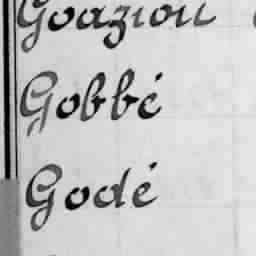 Goaziou
Gobbé
Godé